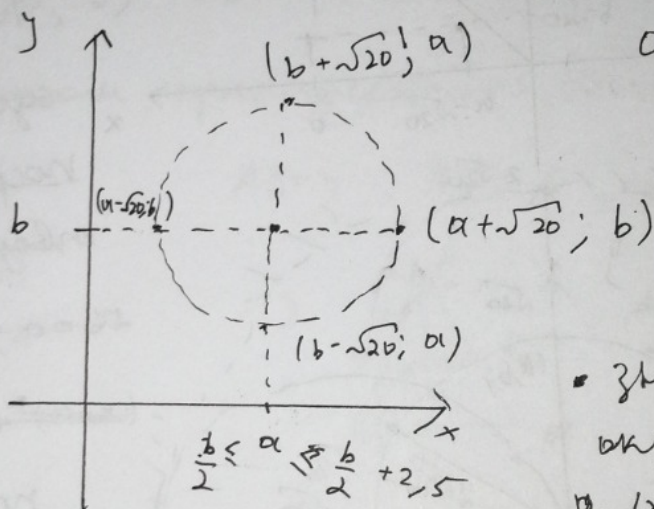 y
(b + √20; a)
b
(a-√20; b)
(a + √20; b)
(b - √20; a)
x
b/2 ≤ a ≤ b/2 + 2,5